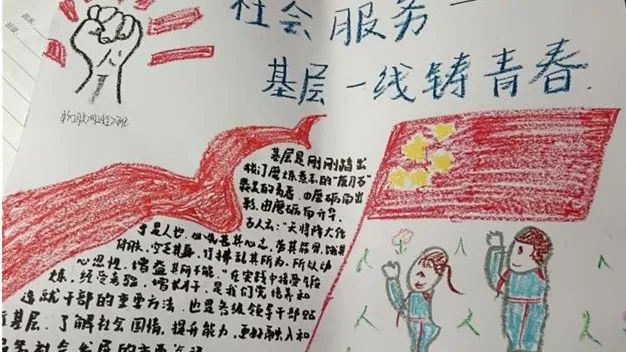 社会服务一
基层一线铸青春
基层是刚刚踏出
校门磨炼意志的"磨刀石"
最美的青春,由磨砺而出
彩,因磨砺而升华。
古人云:"天将降大任
于是人也,必先苦其心志,劳其筋骨,饿其
体肤,空乏其身,行拂乱其所为,所以动
心忍性,增益其所不能"在实践中接受锻
炼,经受考验,增长才干,是我们党培养和
造就干部的重要方法,也是各级领导干部站
基层、了解社会国情、提升能力,更好融入和
社会发展的